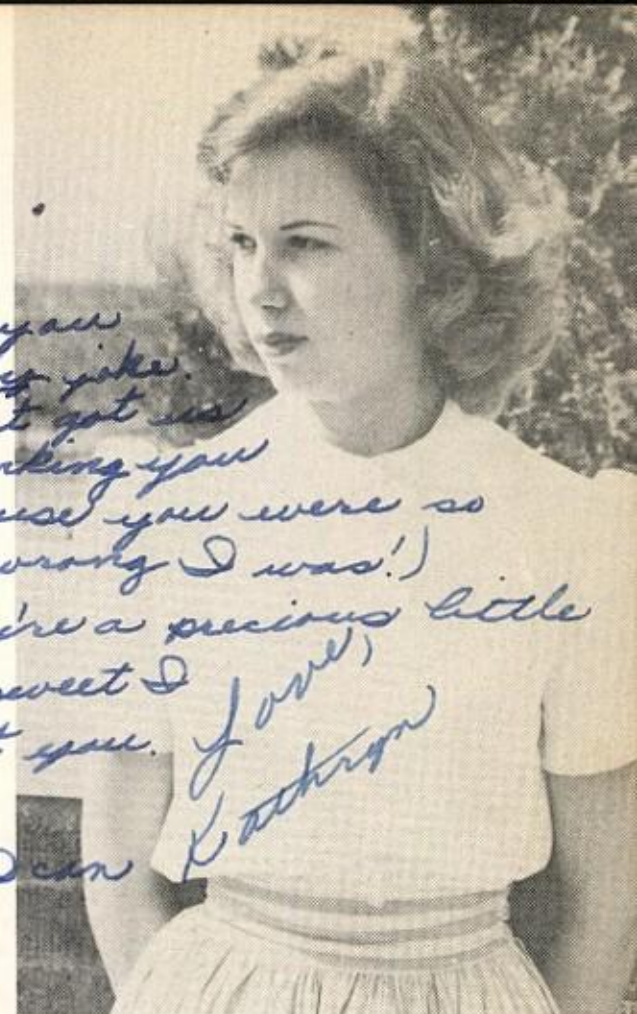 you
joke.
t got us
nking you
use you were so
wrong I was!)
're a precious little
sweet I
t you. Love,
Kathryn
I can